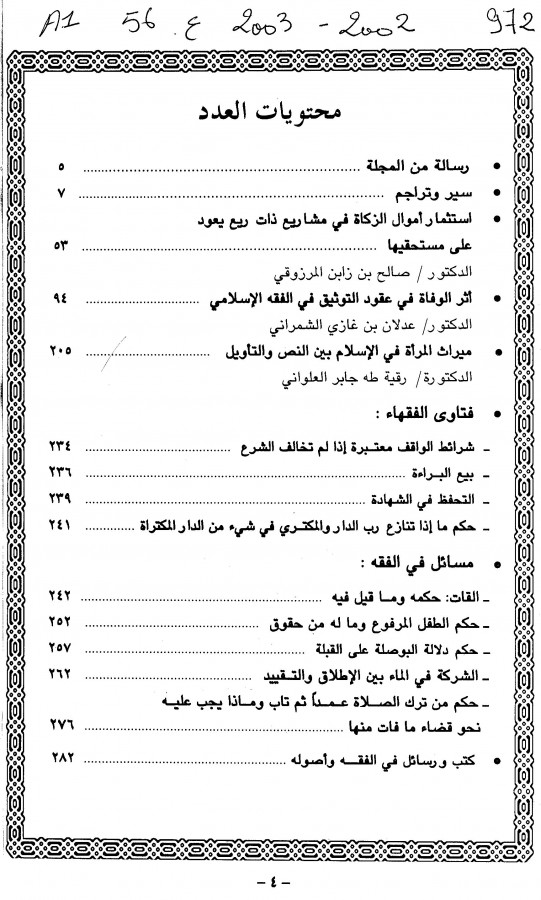 A1 56 ع 2003 - 2002 972
محتويات العدد
• رسالة من المجلة ........ ٥
• سير وتراجم ........ ٧
• استثمار أموال الزكاة في مشاريع ذات ريع يعود
على مستحقيها ........ ٥٣
الدكتور / صالح بن زابن المرزوقي
• أثر الوفاة في عقود التوثيق في الفقه الإسلامي ........ ٩٤
الدكتور/ عدلان بن غازي الشمراني
• ميراث المرأة في الإسلام بين النص والتأويل ........ ٢٠٥
الدكتورة/ رقية طه جابر العلواني
• فتاوى الفقهاء :
ـ شرائط الواقف معتبرة إذا لم تخالف الشرع ........ ٢٣٤
ـ بيع البراءة ........ ٢٣٦
ـ التحفظ في الشهادة ........ ٢٣٩
ـ حكم ما إذا تنازع رب الدار والمكتري في شيء من الدار المكتراة ........ ٢٤١
• مسائل في الفقه :
ـ القات: حكمه وما قيل فيه ........ ٢٤٢
ـ حكم الطفل المرفوع وما له من حقوق ........ ٢٥٢
ـ حكم دلالة البوصلة على القبلة ........ ٢٥٧
ـ الشركة في الماء بين الإطلاق والتقييد ........ ٢٦٢
ـ حكم من ترك الصلاة عمداً ثم تاب وماذا يجب عليه
نحو قضاء ما فات منها ........ ٢٧٦
• كتب ورسائل في الفقه وأصوله ........ ٢٨٢
– ٤ –